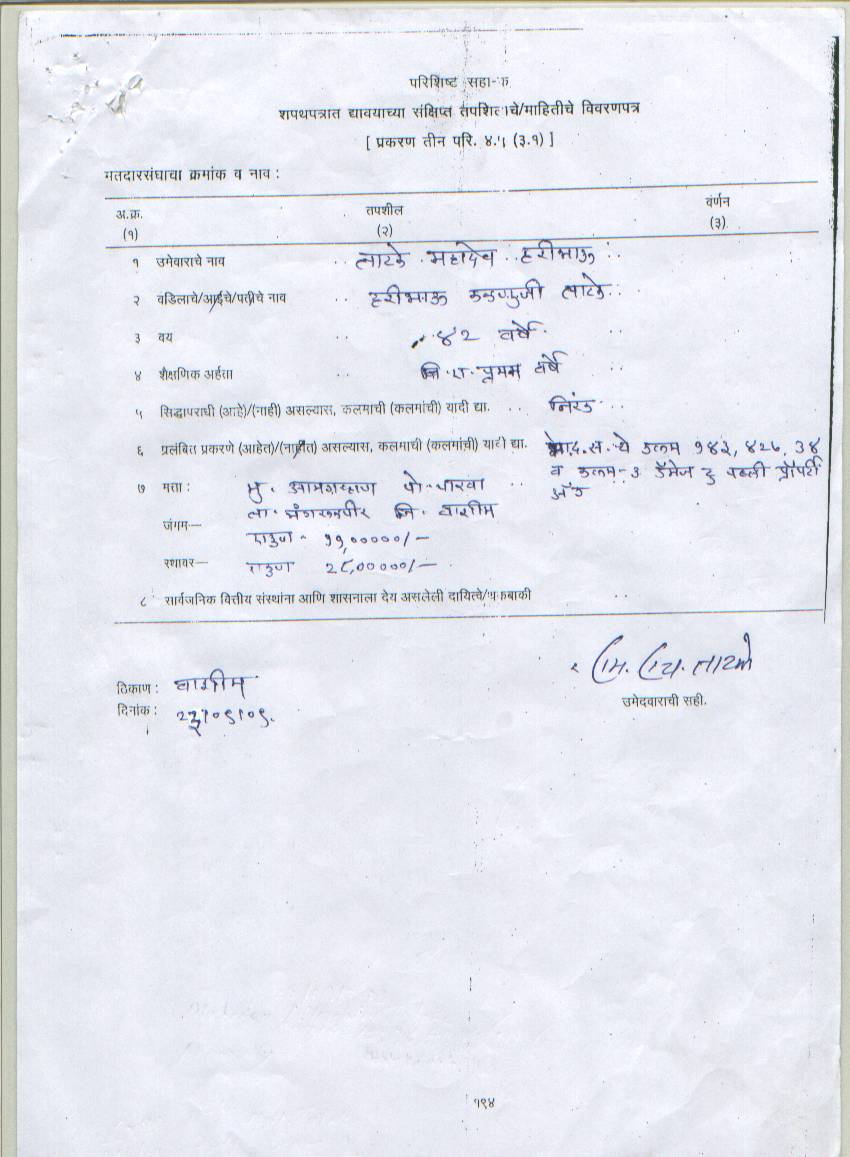 परिशिष्ट सहा-क
शपथपत्रात द्यावयाच्या संक्षिप्त तपशिलाचे/माहितीचे विवरणपत्र
[ प्रकरण तीन परि. ४.५ (३.१) ]
मतदारसंघाचा क्रमांक व नाव :
अ.क्र. तपशील वर्णन
(१) (२) (३)
१ उमेवाराचे नाव .. लाटके महादेव हरीभाऊ
२ वडिलाचे/आईचे/पतीचे नाव .. हरीभाऊ लाटके
३ वय .. ४२ वर्षे ..
४ शैक्षणिक अर्हता .. प्रथम वर्षे
५ सिद्धापराधी (आहे)/(नाही) असल्यास, कलमाची (कलमांची) यादी द्या. .. निरंक ..
६ प्रलंबित प्रकरणे (आहेत)/(नाहीत) असल्यास, कलमाची (कलमांची) यादी द्या. चे कलम १४३, ४२७, ३४
व कलम-३ डॅमेज टु पब्ली प्रॉपर्टी
अॅक्ट
७ मत्ता : मु. आमगव्हाण पो. पारवा ..
जंगम— ता. मंगरूळपीर जि. वाशीम
एकुण - ११,०००००/—
स्थावर— एकुण २८,०००००/—
८ सार्वजनिक वित्तीय संस्थांना आणि शासनाला देय असलेली दायित्वे/थकबाकी ..
ठिकाण : वाशीम
दिनांक : २३/०९/०९.
उमेदवाराची सही.
१९४